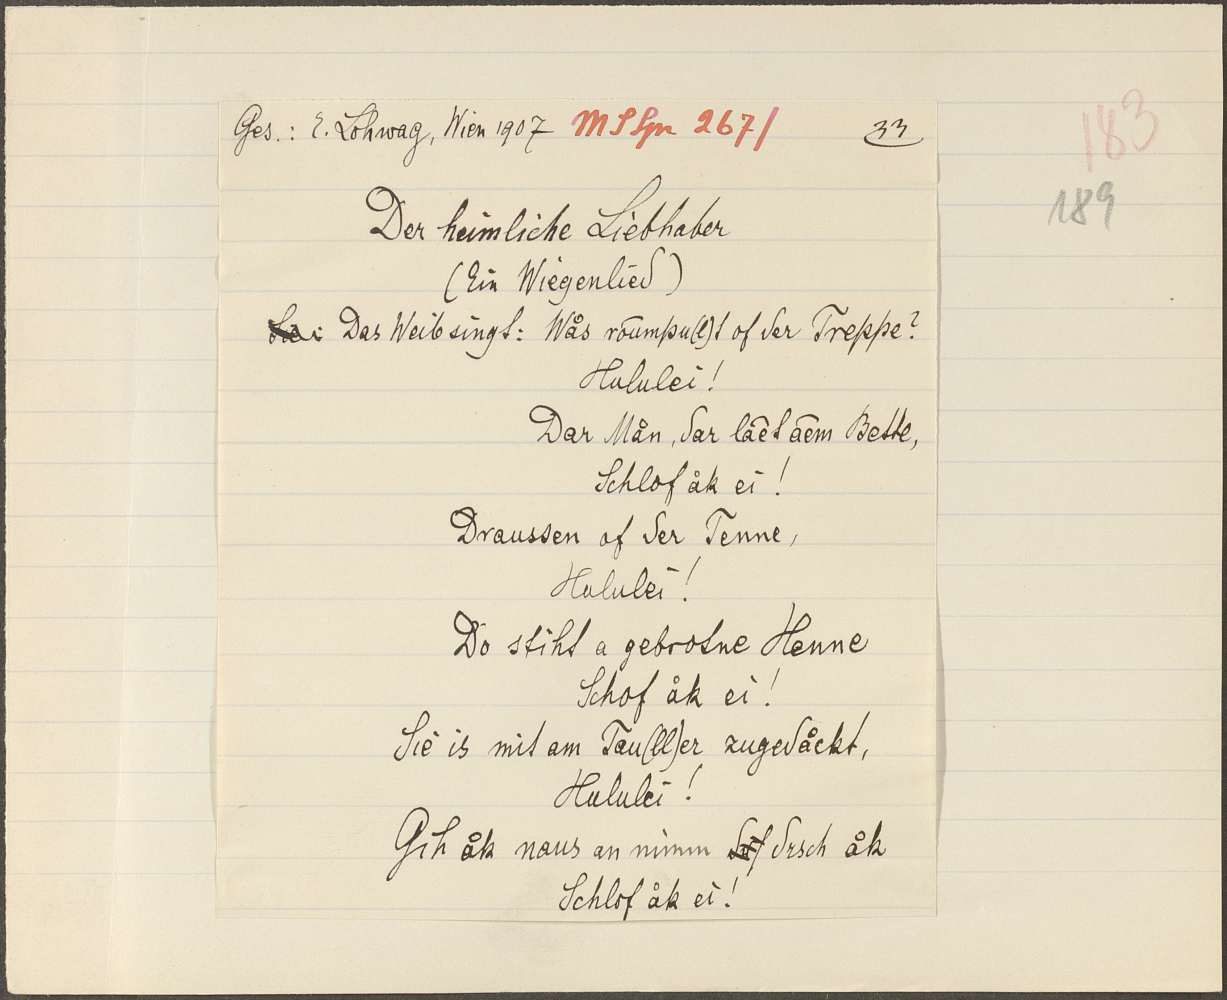 Ges.: E. Lohwag, Wien 1907 33
183
189
Der heimliche Liebhaber
(Ein Wiegenlied)
Das Weib singt: Wås roumpu(l)t of der Treppe?
Hululei!
Dar Mån, dar lāēt āēm Bette,
Schlof åk ei!
Draussen of der Tenne,
Hululei!
Do stiht a gebrotne Henne
Schof åk ei!
Sie is mit am Tau(ll)er zugedåckt,
Hululei!
Gih åk naus an nimm drsch åk
Schlof åk ei!